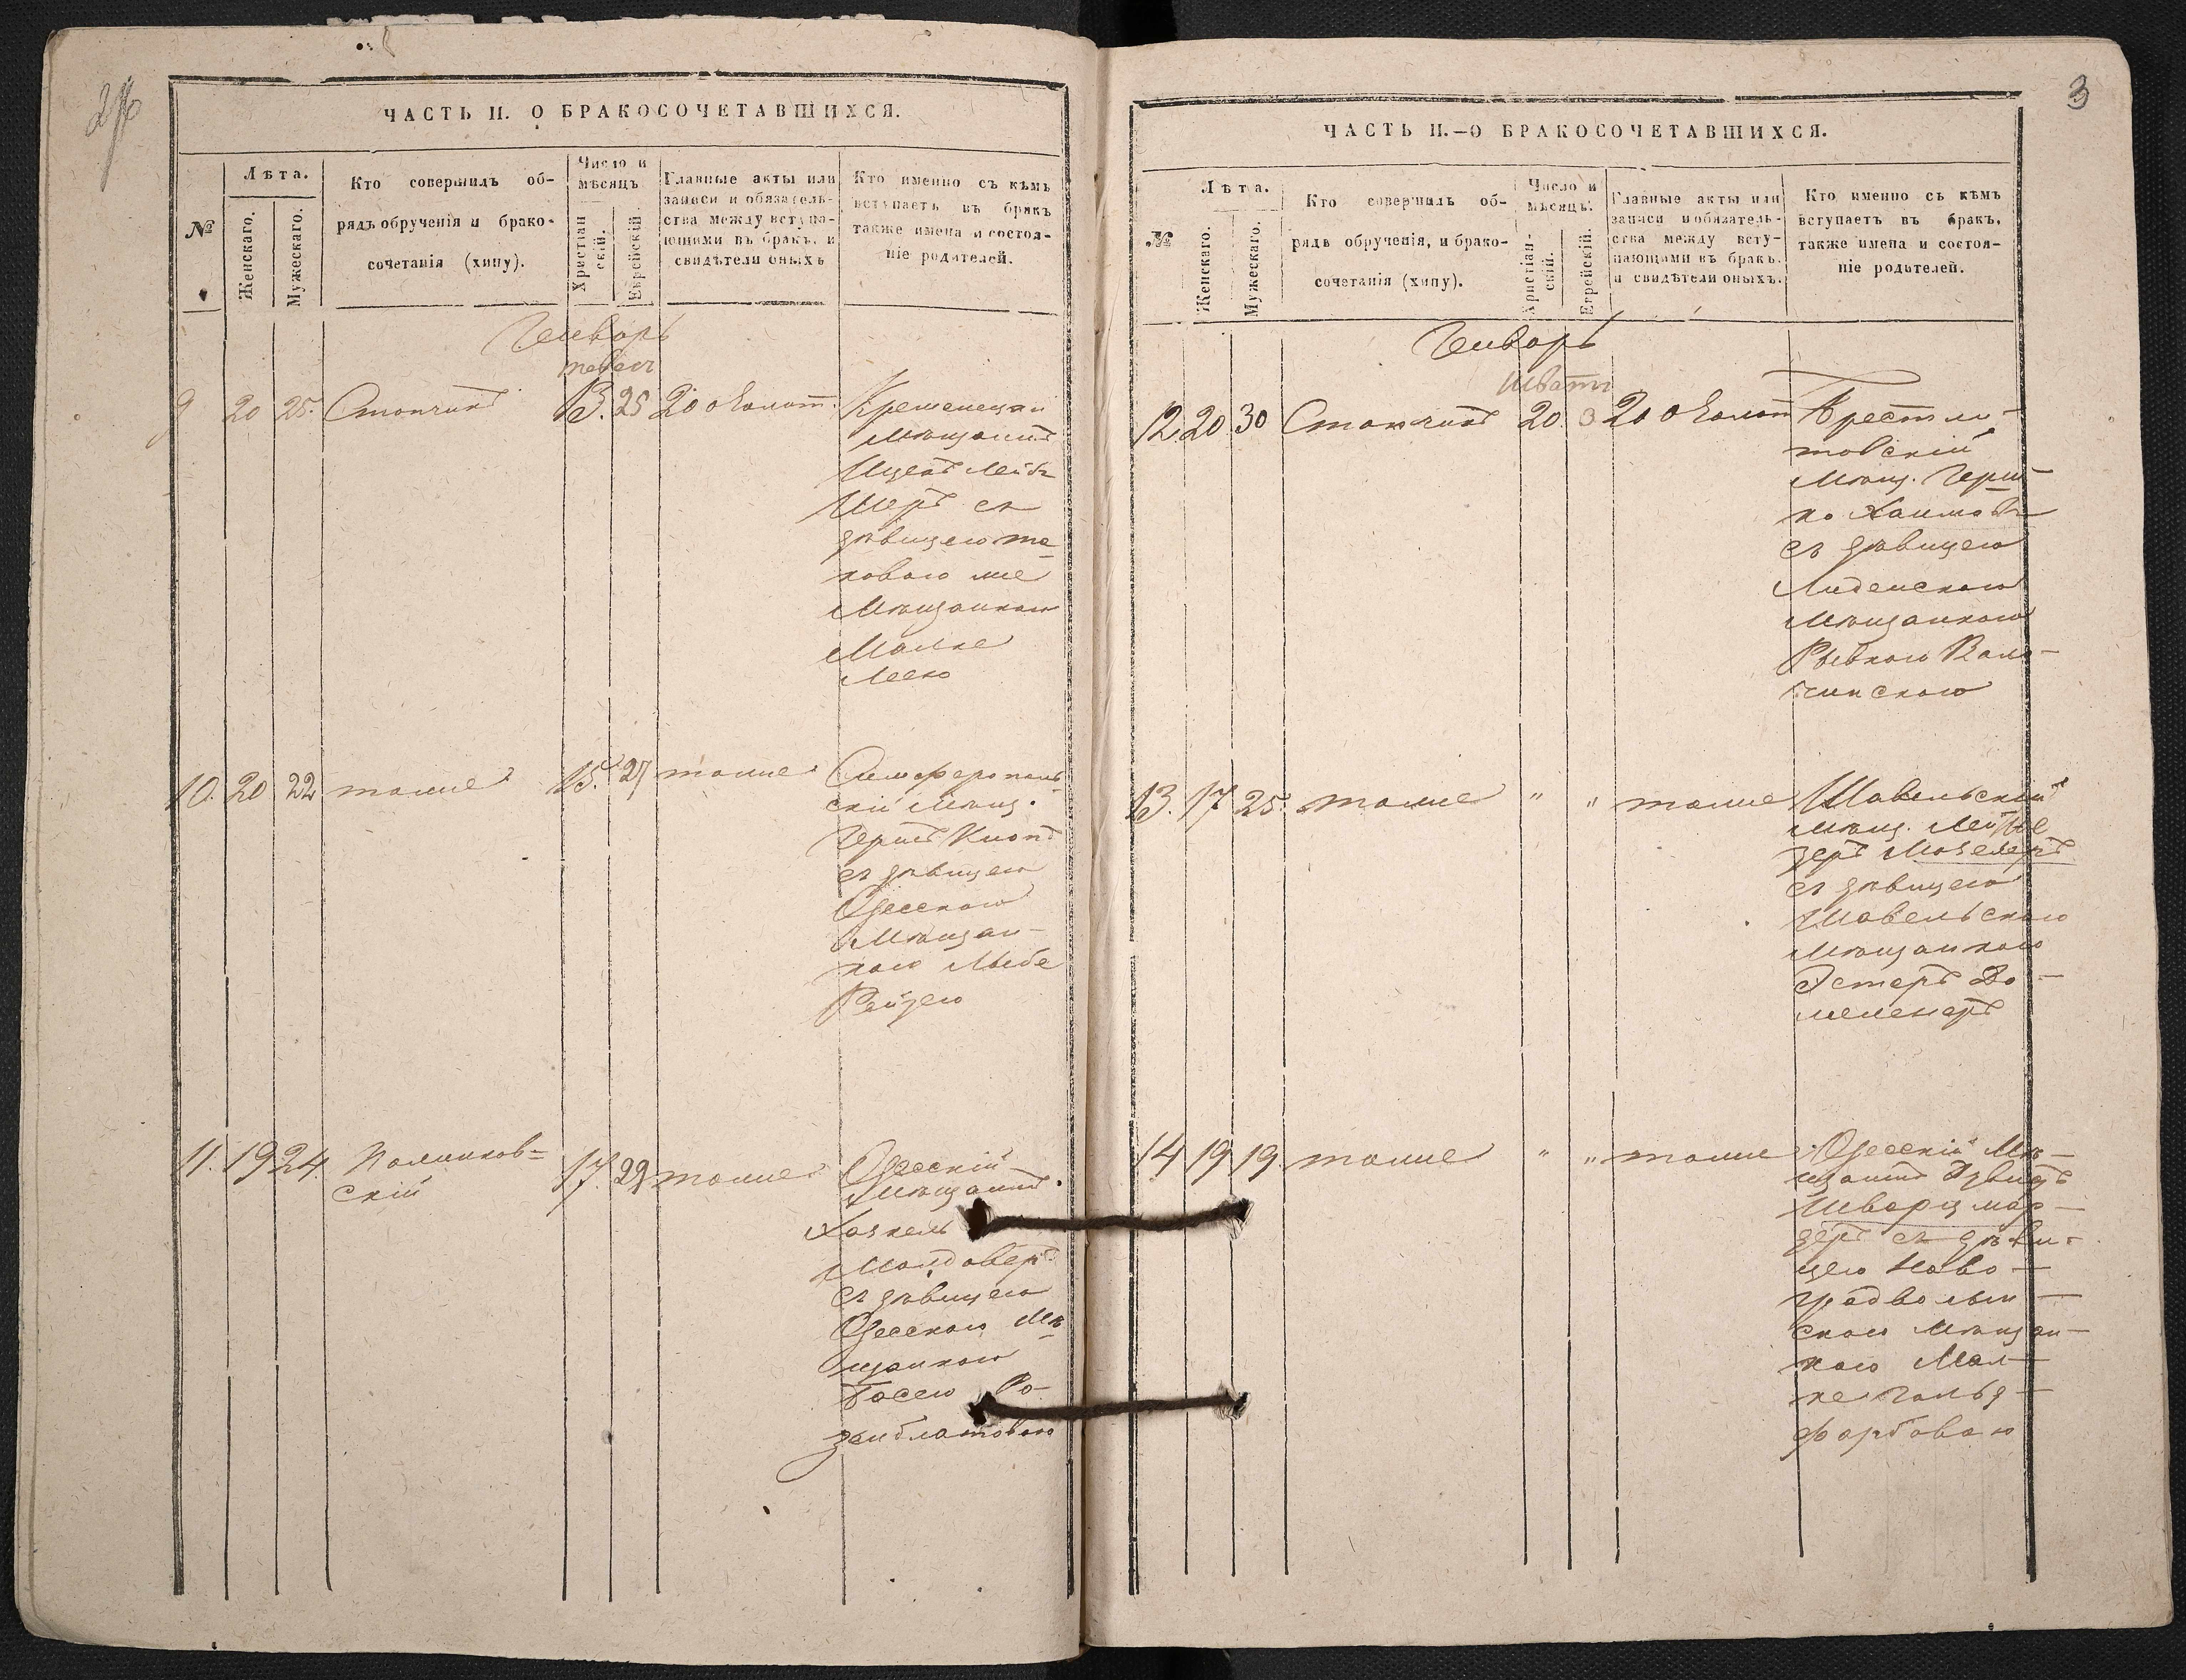 ЧАСТЬ II. О БРАКОСОЧЕТАВШИХСЯ.
№
Лѣта.
Женскаго.
Мужескаго.
Кто совершилъ об-
рядъ обрученія и брако-
сочетанія (хипу).
Число и
мѣсяцъ
Христіан
скій.
Еврейскій.
Главные акты или
записи и обязатель-
ства между вступа-
ющими въ бракъ, и
свидѣтели оныхъ
Кто именно съ кѣмъ
вступаетъ въ бракъ
также имена и состоя-
ніе родителей.
Генварь
тевесъ
9 20 25. 13. 25 20 о золот.
мѣщанинъ
Ицекъ Лейбъ
Шеръ съ
дѣвицею та-
ковою же
мѣщанкою
Малке
10. 20 22 тоже 15. 27 тоже Симферополь
скій мѣщ.
Герш
съ дѣвицею
Одесскою
мѣщан-
кою
Рейзею
11. 19 24. Полинков=
скій
17. 29 тоже Одесскій
мѣщанинъ.
Хаскель
Молдоверъ
съ дѣвицею
Одесскою мѣ
щанкою
Басею Ро-
зенблатовою
3
ЧАСТЬ II.—О БРАКОСОЧЕТАВШИХСЯ.
№
Лѣта.
Женскаго.
Мужескаго.
Кто совершилъ об-
рядъ обрученія, и брако-
сочетанія (хипу).
Число и
мѣсяцъ.
Христіан-
скій.
Еврейскій.
Главные акты или
записи и обязатель-
ства между всту-
пающими въ бракъ.
и свидѣтели оныхъ.
Кто именно съ кѣмъ
вступаетъ въ бракъ,
также имена и состоя-
ніе родителей.
Генварь
Шватъ
12 20 30 20 3 20 о золот Брестли-
товскій
мѣщ. Герш-
ко Хаимовъ
съ дѣвицею
Лидскою
мѣщанкою
Рывкою Воло-
жинскою
13. 17 25. тоже " " тоже Шавельскій
мѣщ. Лейзе
съ дѣвицею
Шавельскою
мѣщанкою
Эстеръ
14 19 19 тоже " " тоже Одесскій мѣ-
щанинъ
Шварцман-
съ дѣви-
цею Ново-
градволын-
скою мѣщан-
кою Мал-
ке Гольд-
фарбовою